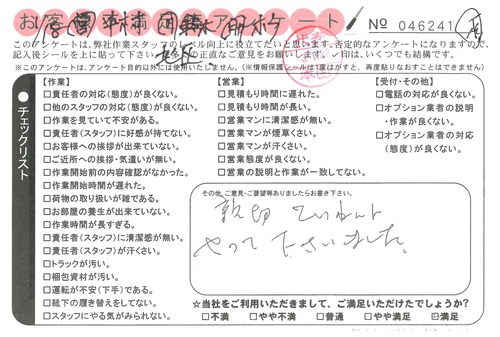 お客様アンケート
No 046241
このアンケートは、弊社作業スタッフのレベル向上に役立てたいと思います。否定的なアンケートになりますので、
記入後シールを上に貼って下さい。お客様の正直なご意見をお願いします。✓印は、いくつでも結構です。
※このアンケートは、アンケート目的以外には使用いたしません。(※情報保護シールは1度はがすと、再度貼りなおすことはできません)
チェックリスト
【作業】
□責任者の対応(態度)が良くない。
□他のスタッフの対応(態度)が良くない。
□作業を見ていて不安がある。
□責任者(スタッフ)に好感が持てない。
□お客様への挨拶が出来ていない。
□ご近所への挨拶・気遣いが無い。
□作業開始前の内容確認がなかった。
□作業開始時間が遅れた。
□荷物の取り扱いが雑である。
□お部屋の養生が出来ていない。
□作業時間が長すぎる。
□責任者(スタッフ)に清潔感が無い。
□責任者(スタッフ)が汗くさい。
□トラックが汚い。
□梱包資材が汚い。
□運転が不安(下手)である。
□靴下の履き替えをしてない。
□スタッフにやる気がみられない。
【営業】
□見積もり時間に遅れた。
□見積もり時間が長い。
□営業マンに清潔感が無い。
□営業マンが煙草くさい。
□営業マンが汗くさい。
□営業態度が良くない。
□営業の説明と作業が一致してない。
【受付・その他】
□電話の対応が良くない。
□オプション業者の説明
・作業が良くない。
□オプション業者の対応
(態度)が良くない。
その他、ご意見・ご要望等ありましたらお書き下さい。
親切 ていねいに
やって下さいました。
☆当社をご利用いただきまして、ご満足いただけたでしょうか?
□不満 □やや不満 □普通 □やや満足 □満足